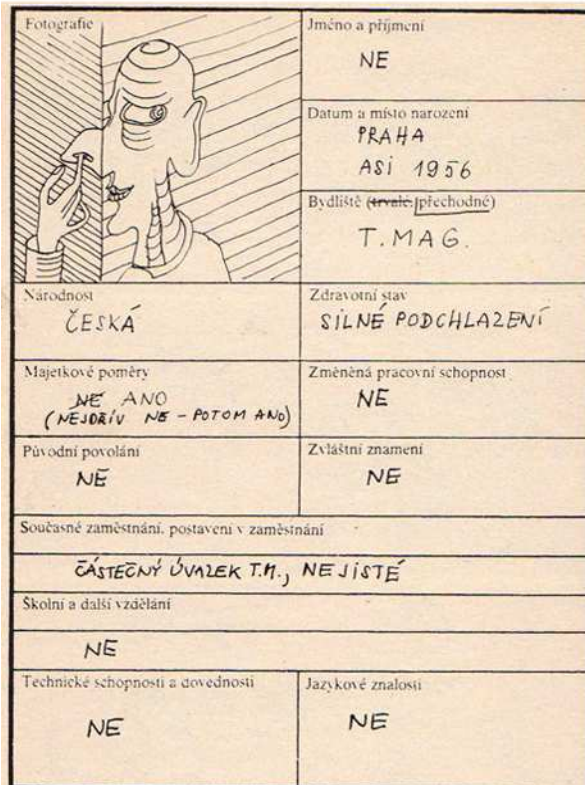 Fotografie
Jméno a příjmení
NE
Datum a místo narození
PRAHA
ASI 1956
Bydliště (trvalé, přechodné)
T. MAG.
Národnost
ČESKÁ
Zdravotní stav
SILNÉ PODCHLAZENÍ
Majetkové poměry
NE ANO
(NEJDŘÍV NE - POTOM ANO)
Změněná pracovní schopnost
NE
Původní povolání
NE
Zvláštní znamení
NE
Současné zaměstnání, postavení v zaměstnání
ČÁSTEČNÝ ÚVAZEK T.M., NEJISTÉ
Školní a další vzdělání
NE
Technické schopnosti a dovednosti
NE
Jazykové znalosti
NE